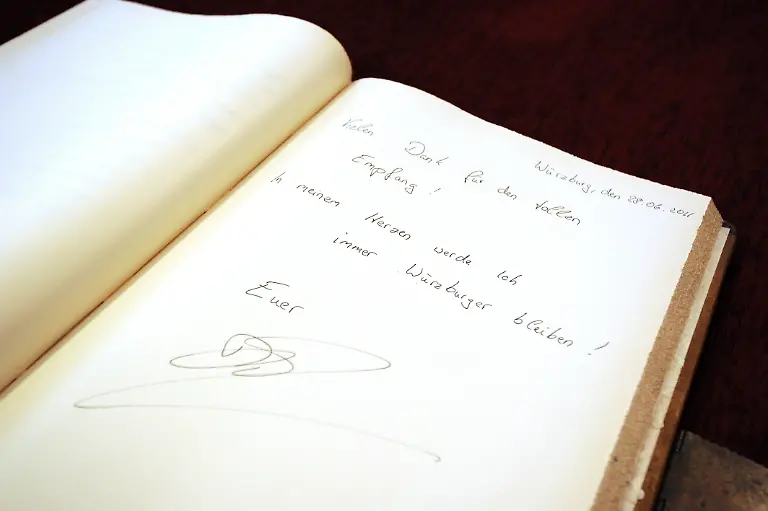 Würzburg, den 28.06.2011
Vielen Dank für den tollen
Empfang!
In meinem Herzen werde ich
immer Würzburger bleiben!
Euer